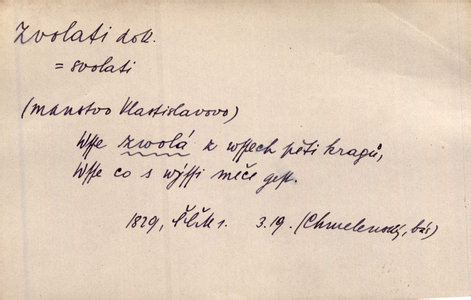 Zvolati dok.
= svolati
(manstvo Vlastislavovo)
Wsse zwolá z wssech pěti kragů,
Wsse co s wýssi meče gest.
1829, ČČM 1. 3.19. (Chmelenský, bás)